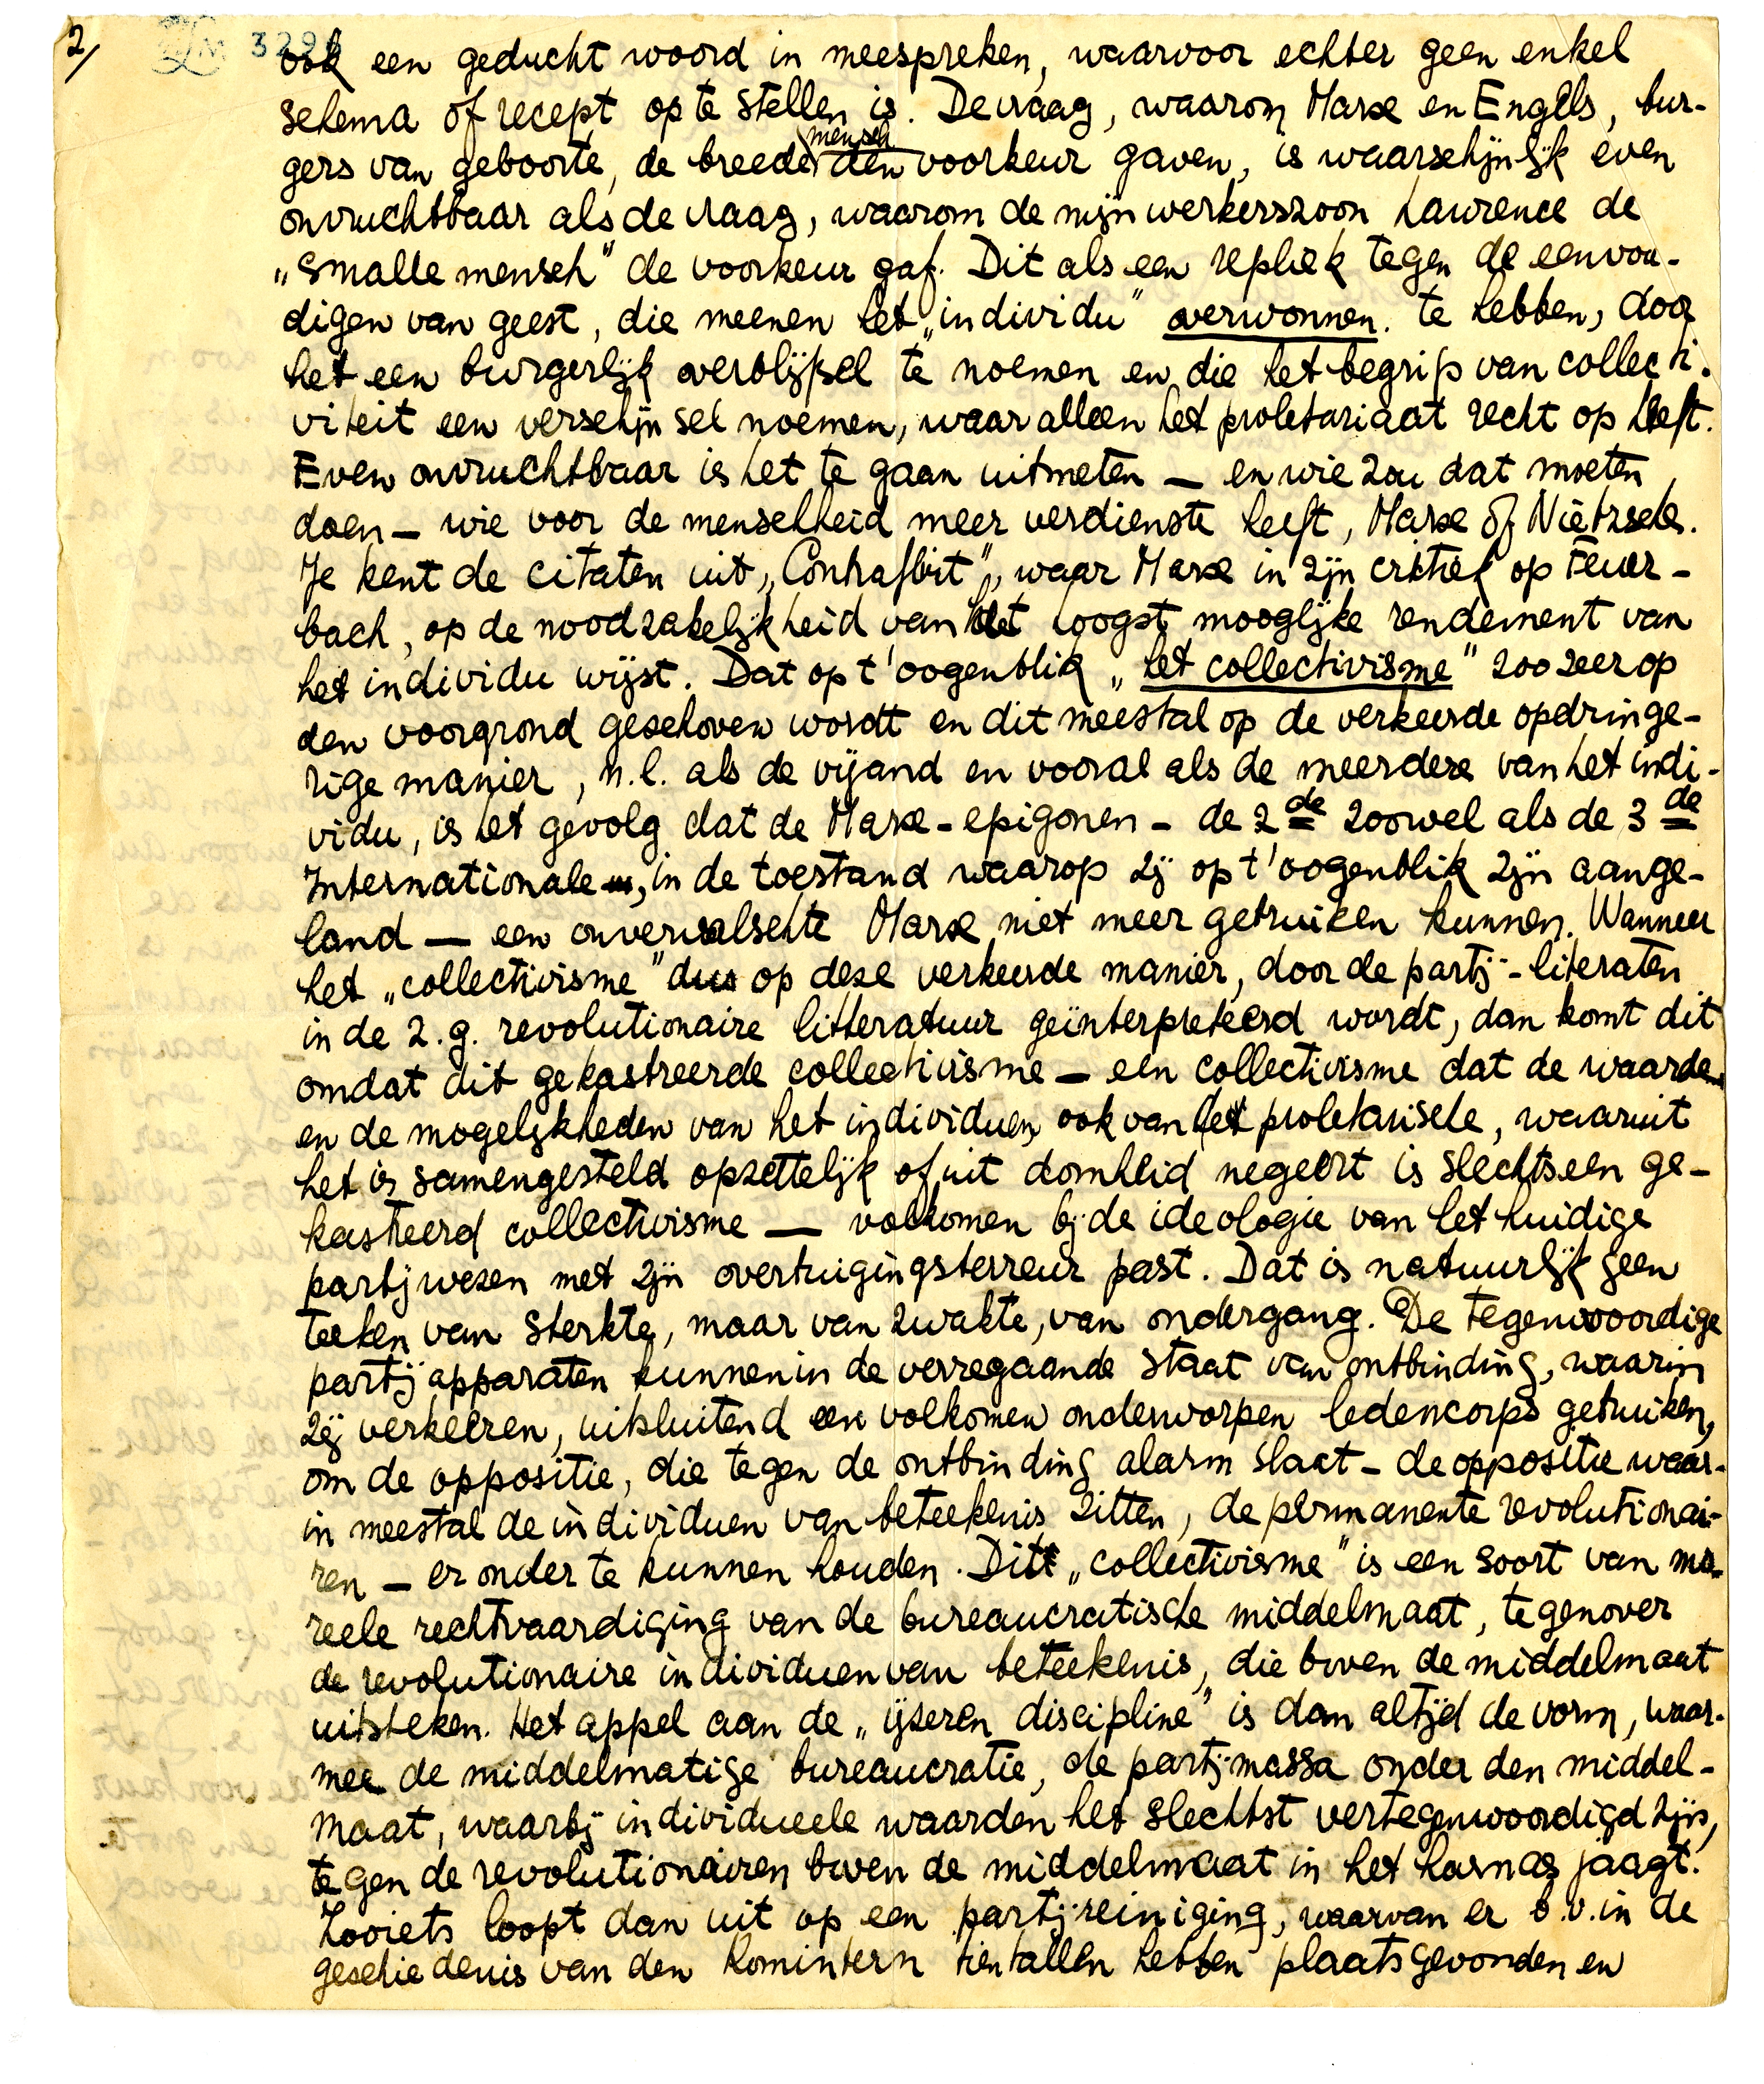 2/
3291
ook een geducht woord in meespreken, waarvoor echter geen enkel
schema of recept op te stellen is. De vraag, waarom Marx en Engels, bur-
mensch
gers van geboorte, de breede den voorkeur gaven, is waarschijnlijk even
onvruchtbaar als de vraag, waarom de mijnwerkerszoon Lawrence de
„smalle mensch" de voorkeur gaf. Dit als een repliek tegen de eenvou-
digen van geest, die meenen het „individu" overwonnen te hebben, door
het een burgerlijk overblijfsel te noemen en die het begrip van collecti-
viteit een verschijnsel noemen, waar alleen het proletariaat recht op heeft.
Even onvruchtbaar is het te gaan uitmeten — en wie zou dat moeten
doen — wie voor de menschheid meer verdienste heeft, Marx of Nietzsche.
Je kent de citaten uit „Contrafort", waar Marx in zijn critiek op Feuer-
bach, op de noodzakelijkheid van het hoogst mooglijke rendement van
het individu wijst. Dat op t'oogenblik „het collectivisme" zoo zeer op
den voorgrond geschoven wordt en dit meestal op de verkeerde opdringe-
rige manier, n.l. als de vijand en vooral als de meerdere van het indi-
vidu, is het gevolg dat de Marx-epigonen – de 2de zoowel als de 3de
Internationale, in de toestand waarop zij op t'oogenblik zijn aange-
land — een onvervalschte Marx niet meer gebruiken kunnen. Wanneer
het „collectivisme" dus op deze verkeerde manier, door de partij-literaten
in de z.g. revolutionaire litteratuur geïnterpreteerd wordt, dan komt dit
omdat dit gekastreerde collectivisme — een collectivisme dat de waarden
en de mogelijkheden van het individuen, ook van het proletarische, waaruit
het is samengesteld opzettelijk of uit domheid negeert is slechts een ge-
kastreerd collectivisme — volkomen bij de ideologie van het huidige
partijwezen met zijn overtuigingsterreur past. Dat is natuurlijk geen
teeken van sterkte, maar van zwakte, van ondergang. De tegenwoordige
partijapparaten kunnen in de verregaande staat van ontbinding, waarin
zij verkeeren, uitsluitend een volkomen onderworpen ledencorps gebruiken,
om de oppositie, die tegen de ontbinding alarm slaat – de oppositie waar-
in meestal de individuen van beteekenis zitten, de permanente revolutionai-
ren – er onder te kunnen houden. Dit „collectivisme" is een soort van mo-
reele rechtvaardiging van de bureaucratische middelmaat, tegenover
de revolutionaire individuen van beteekenis, die boven de middelmaat
uitsteken. Het appel aan de „ijzeren discipline" is dan altijd de vorm, waar-
mee de middelmatige bureaucratie, de partij-massa onder den middel-
maat, waarbij individueele waarden het slechtst vertegenwoordigd zijn,
tegen de revolutionairen boven de middelmaat in het harnas jaagt.
Zooiets loopt dan uit op een partij-reiniging, waarvan er b.v. in de
geschiedenis van den Komintern tientallen hebben plaatsgevonden en